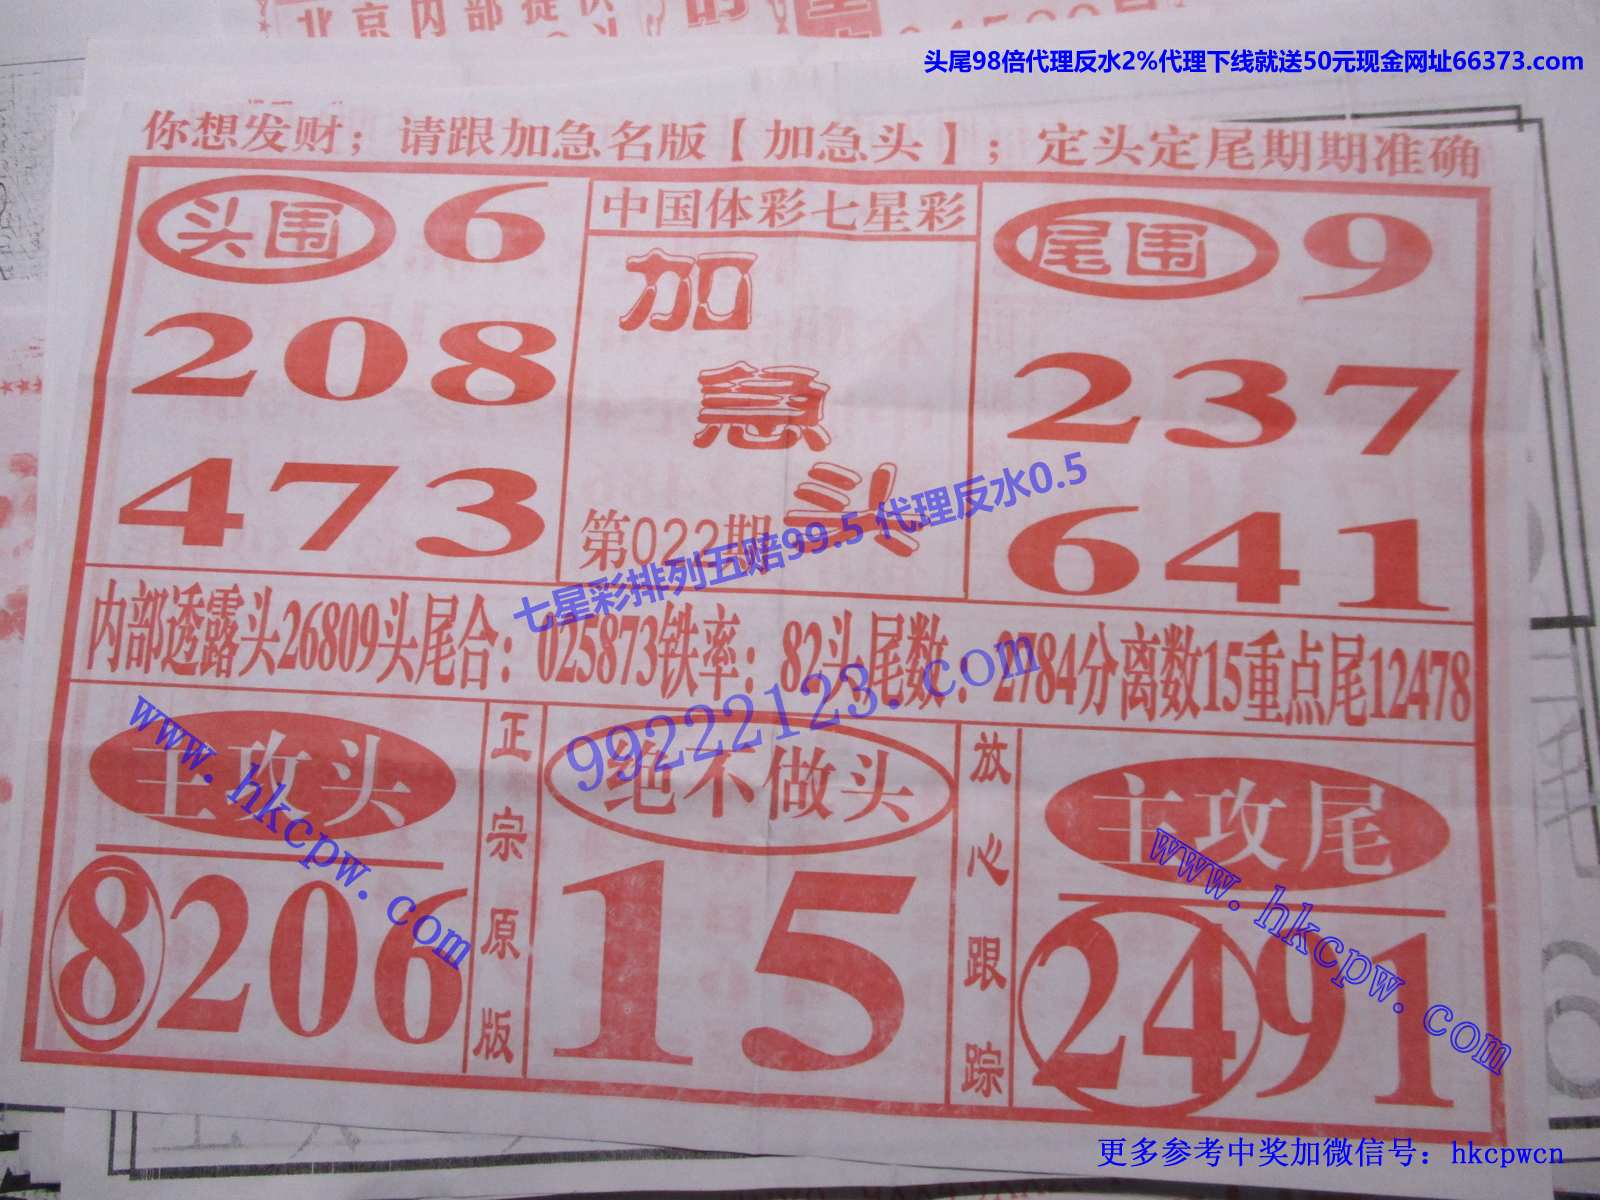 北京内部提供
头尾98倍代理反水2%代理下线就送50元现金网址66373.com
你想发财；请跟加急名版【加急头】；定头定尾期期准确
头围 6
208
473
中国体彩七星彩
加急头
第022期
尾围 9
237
641
七星彩排列五赔99.5 代理反水0.5
内部透露头26809头尾合：025873铁率：82头尾数：2784分离数15重点尾12478
99222123.com
主攻头
8206
www.hkcpw.com
正宗原版
绝不做头
15
放心跟踪
主攻尾
2491
www.hkcpw.com
更多参考中奖加微信号：hkcpwcn